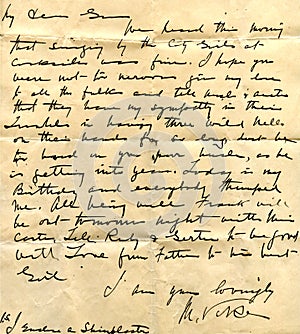 My Dear Gran
We heard this morning
that singing by the C.G. Girls at
was fine. I hope you
were not to nervous give my love
to all the folks and tell uncle & aunts
that they have my sympathy in their
troubles in having three wild
on their hands for so long, dont be
to hard on your poor uncle, as he
is getting into years. Today is my
Birthday and everybody thumped
me. All being well Frank will
be out tomorrow night with this
Carter, Tell Ruby & Gertie to be good
with Love from Father to his best
Girl
I am yours lovingly
I Enclose a